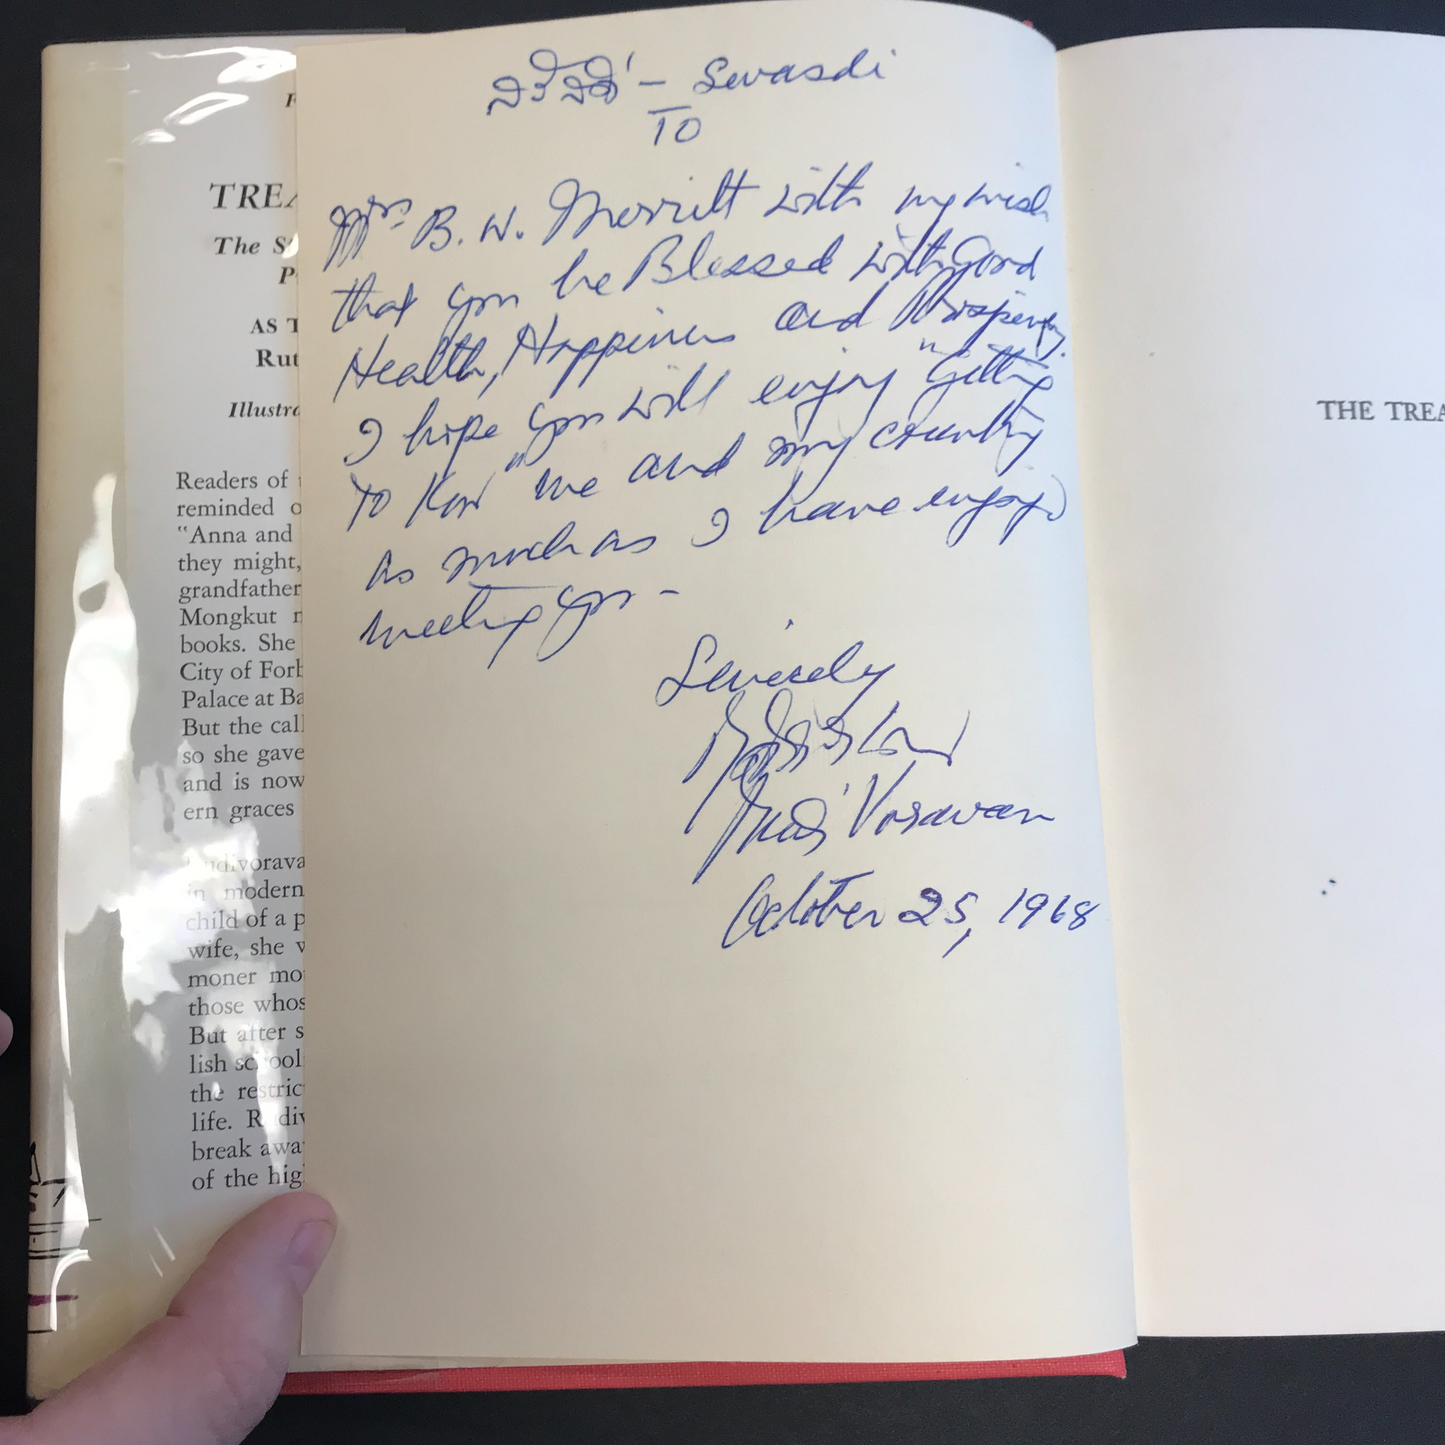 สวัสดี – Sewasdi
TO
Mrs. B. W. Merritt with my wish
that you be Blessed with Good
Health, Happiness and Prosperity.
I hope you will enjoy "Getting
to Know" me and my country
as much as I have enjoyed
meeting you –
Sincerely
Voravan
October 25, 1968
TREA
The S
P
AS T
Rut
Illustra
Readers of
reminded o
"Anna and
they might,
grandfather
Mongkut
books. She
City of Forb
Palace at Ba
But the call
so she gave
and is now
ern graces
udivorava
in modern
child of a p
wife, she w
moner mo
those whos
But after s
lish school
the restric
life. R div
break awa
of the hig
THE TREA